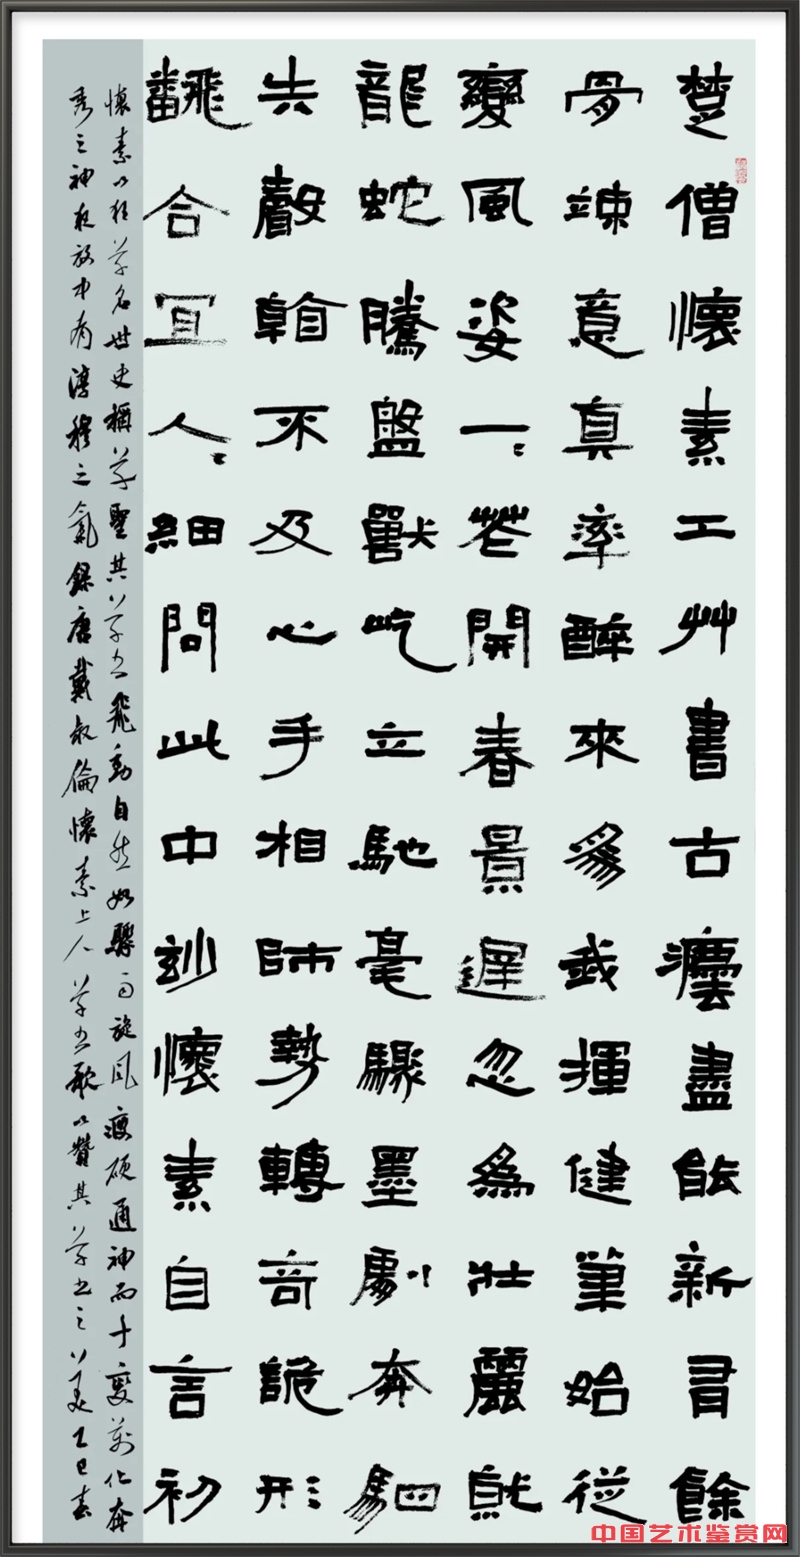 楚僧懷素工艸書古灋盡能新有餘
骨竦意真率醉來為我揮健筆始從
變風姿一、花開春景遲忽為壯麗就
龍蛇騰盤獸屹立馳毫驟墨劇奔駟
失聲看不及心手相師勢轉奇詭形
翻合宜人、細問此中妙懷素自言初
懷素以狂草名世史稱草聖其草書飛動自然如驟雨旋風瘦硬通神而千變萬化奔
秀之神放中有淳穆之氣錄唐戴叔倫懷素上人草書歌以贊其草書之美乙巳春
中国艺术鉴赏网